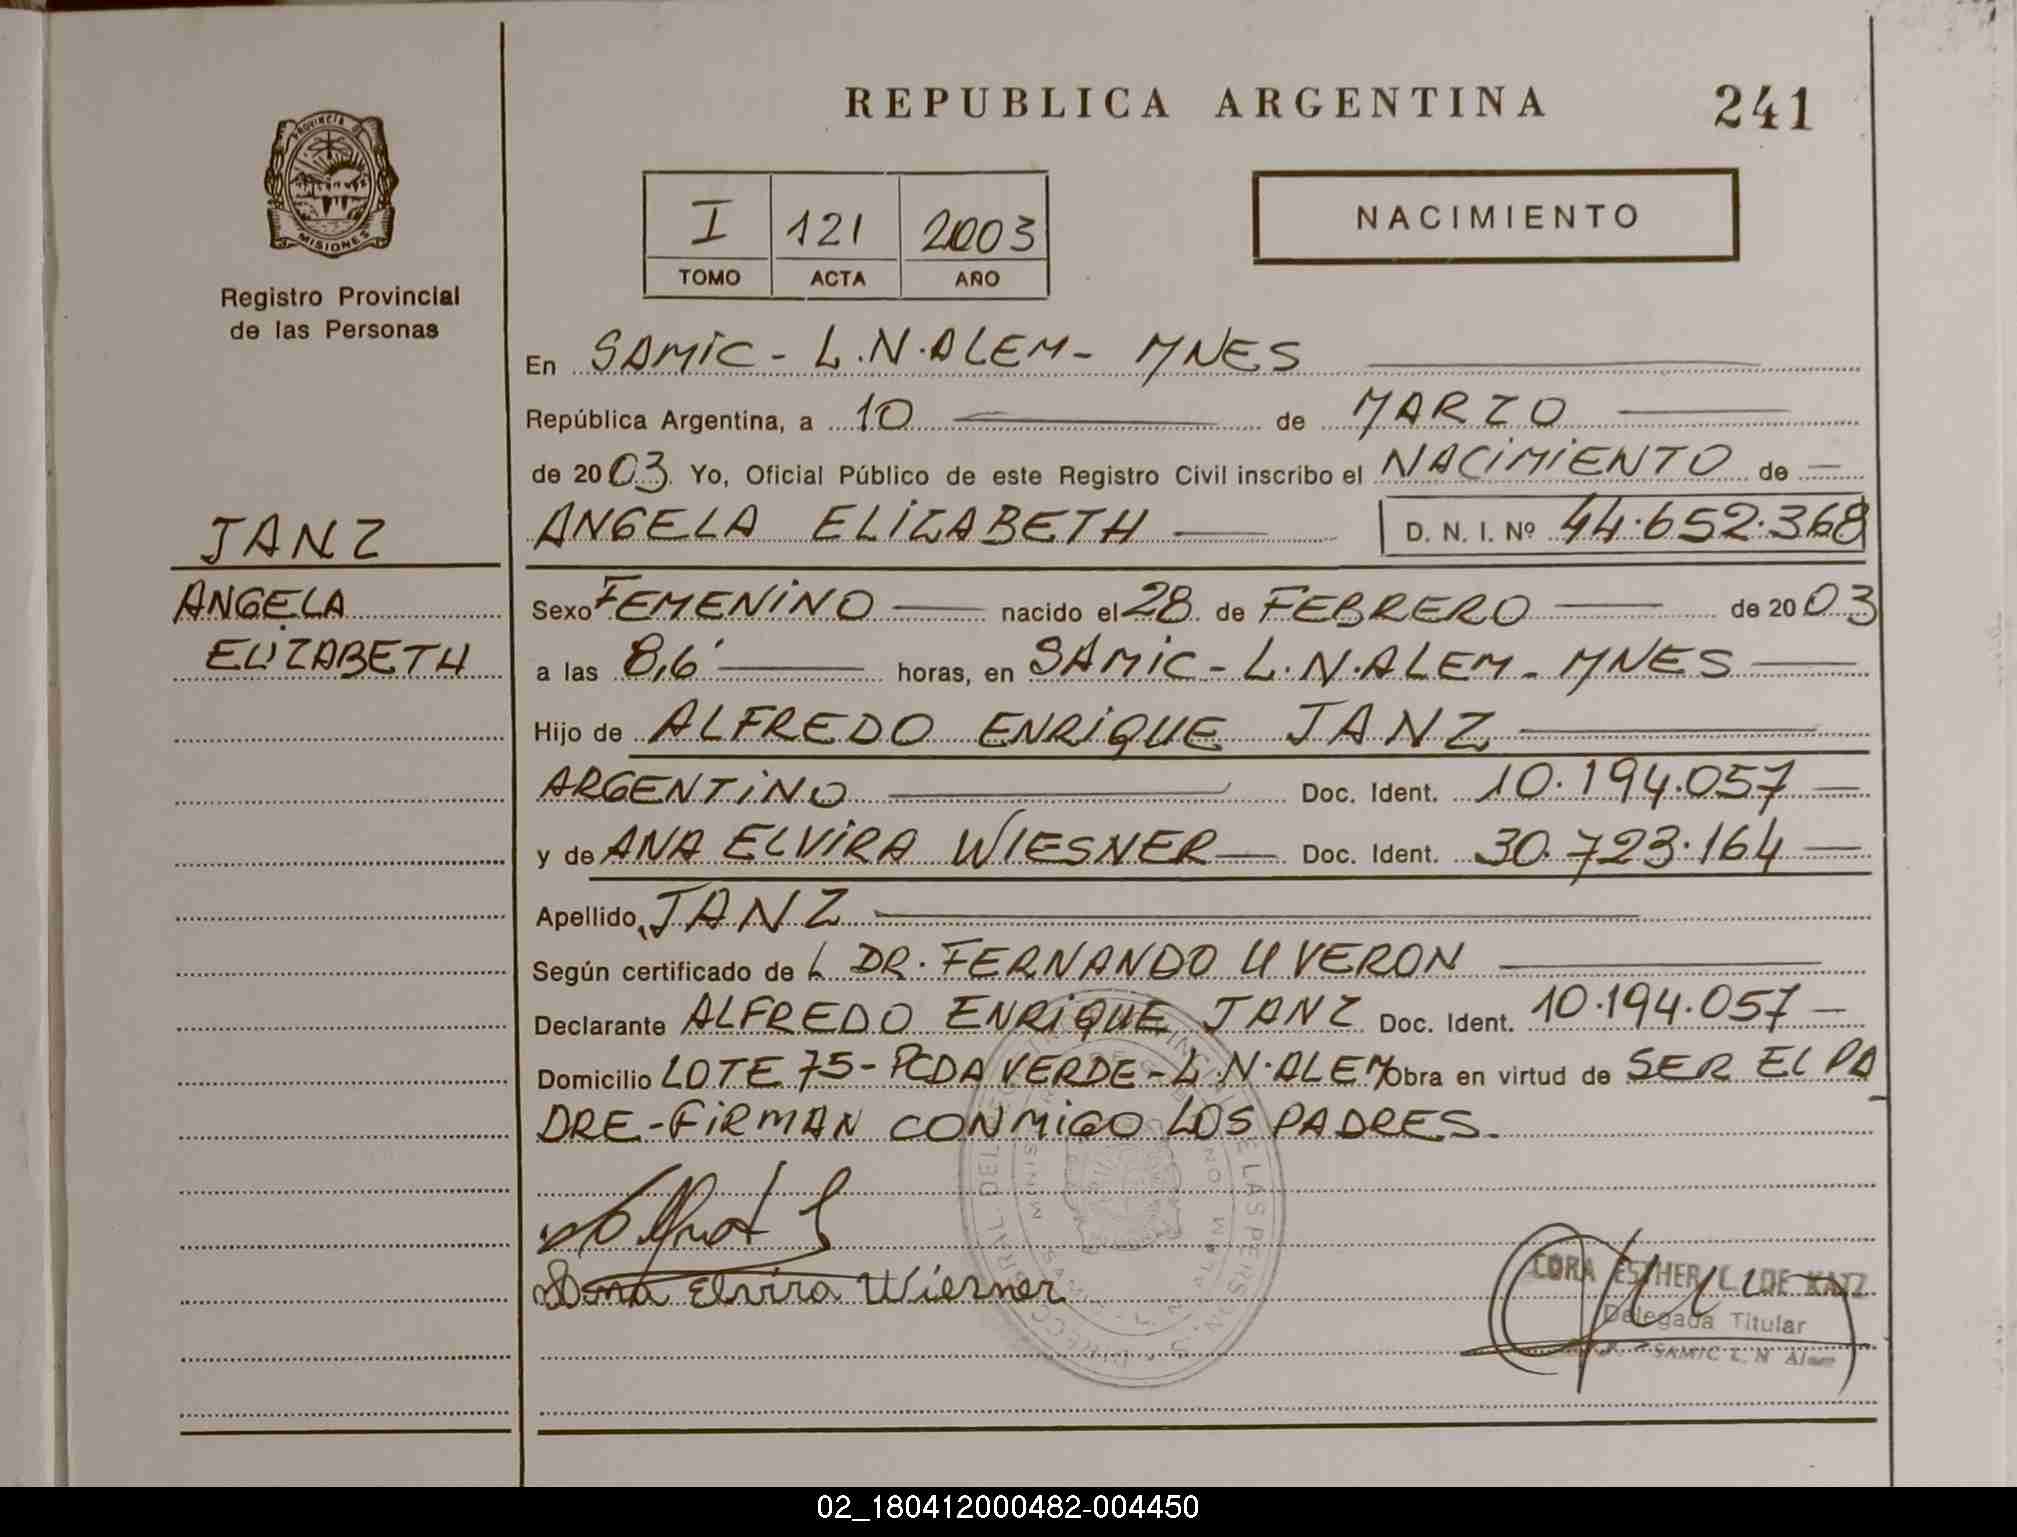 REPUBLICA ARGENTINA 241
PROVINCIA DE
MISIONES
Registro Provincial
de las Personas
I 121 2003
TOMO ACTA AÑO
NACIMIENTO
En SAMIC - L.N.ALEM - MNES
República Argentina, a 10 de MARZO
de 2003 Yo, Oficial Público de este Registro Civil inscribo el NACIMIENTO de
JANZ
ANGELA
ELIZABETH
ANGELA ELIZABETH D. N. I. Nº 44.652.368
Sexo FEMENINO nacido el 28 de FEBRERO de 2003
a las 8,6' horas, en SAMIC - L.N.ALEM - MNES
Hijo de ALFREDO ENRIQUE JANZ
ARGENTINO Doc. Ident. 10.194.057
y de ANA ELVIRA WIESNER Doc. Ident. 30.723.164
Apellido JANZ
Según certificado de L DR. FERNANDO U VERON
Declarante ALFREDO ENRIQUE JANZ Doc. Ident. 10.194.057
Domicilio LOTE 75 - PCDA VERDE - L.N.ALEM Obra en virtud de SER EL PA
DRE - FIRMAN CONMIGO LOS PADRES.
Ana Elvira Wiesner
CORA ESTHER L. DE KATZ
Delegada Titular
SAMIC L. N. Alem
02_180412000482-004450